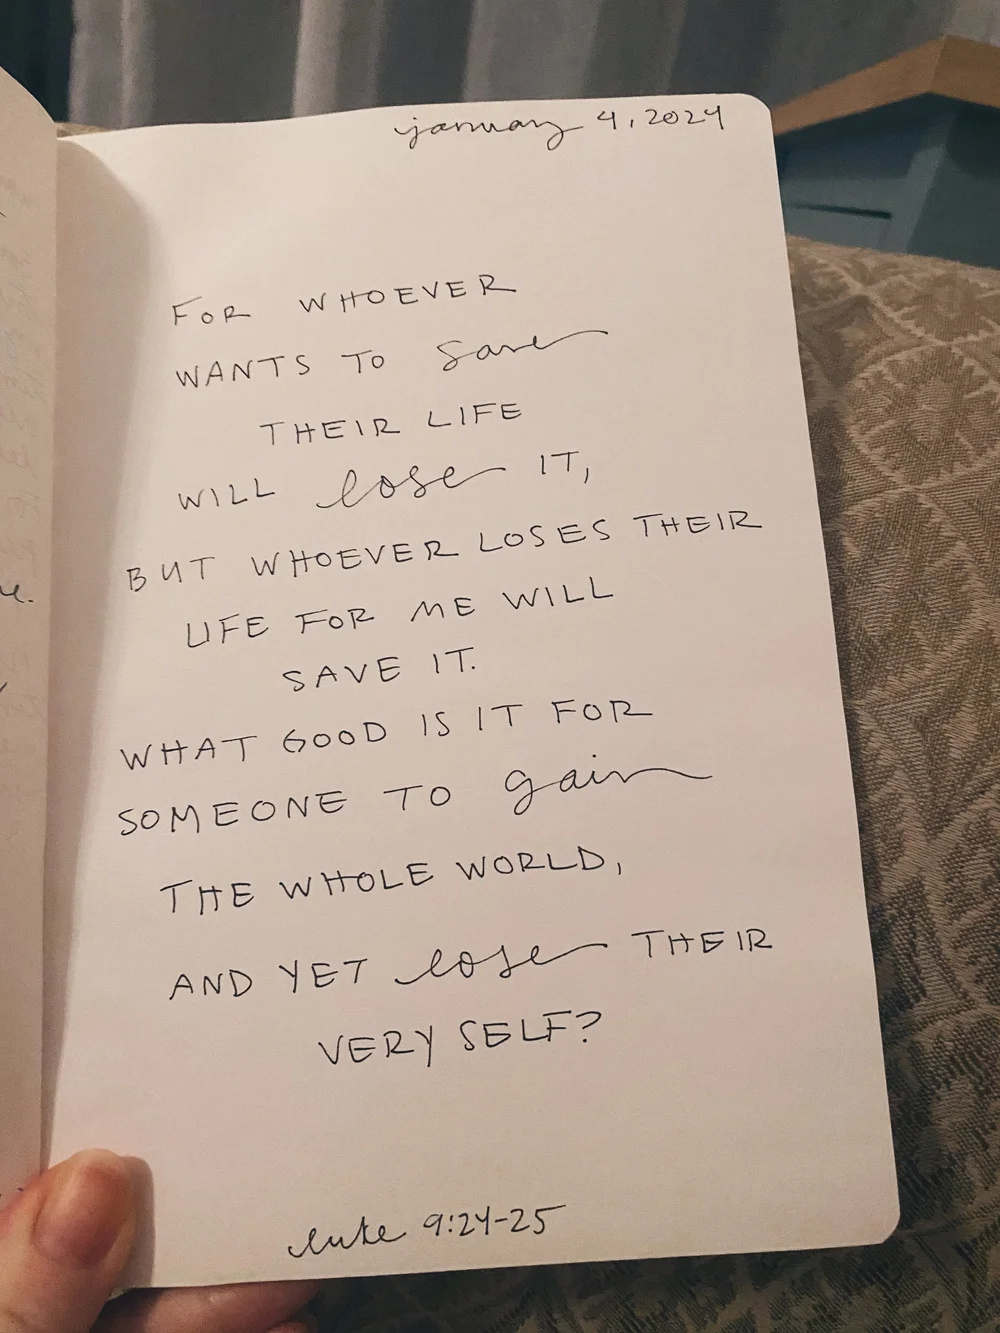 january 4, 2024
FOR WHOEVER
WANTS TO save
THEIR LIFE
WILL lose IT,
BUT WHOEVER LOSES THEIR
LIFE FOR ME WILL
SAVE IT.
WHAT GOOD IS IT FOR
SOMEONE TO gain
THE WHOLE WORLD,
AND YET lose THEIR
VERY SELF?
luke 9:24-25